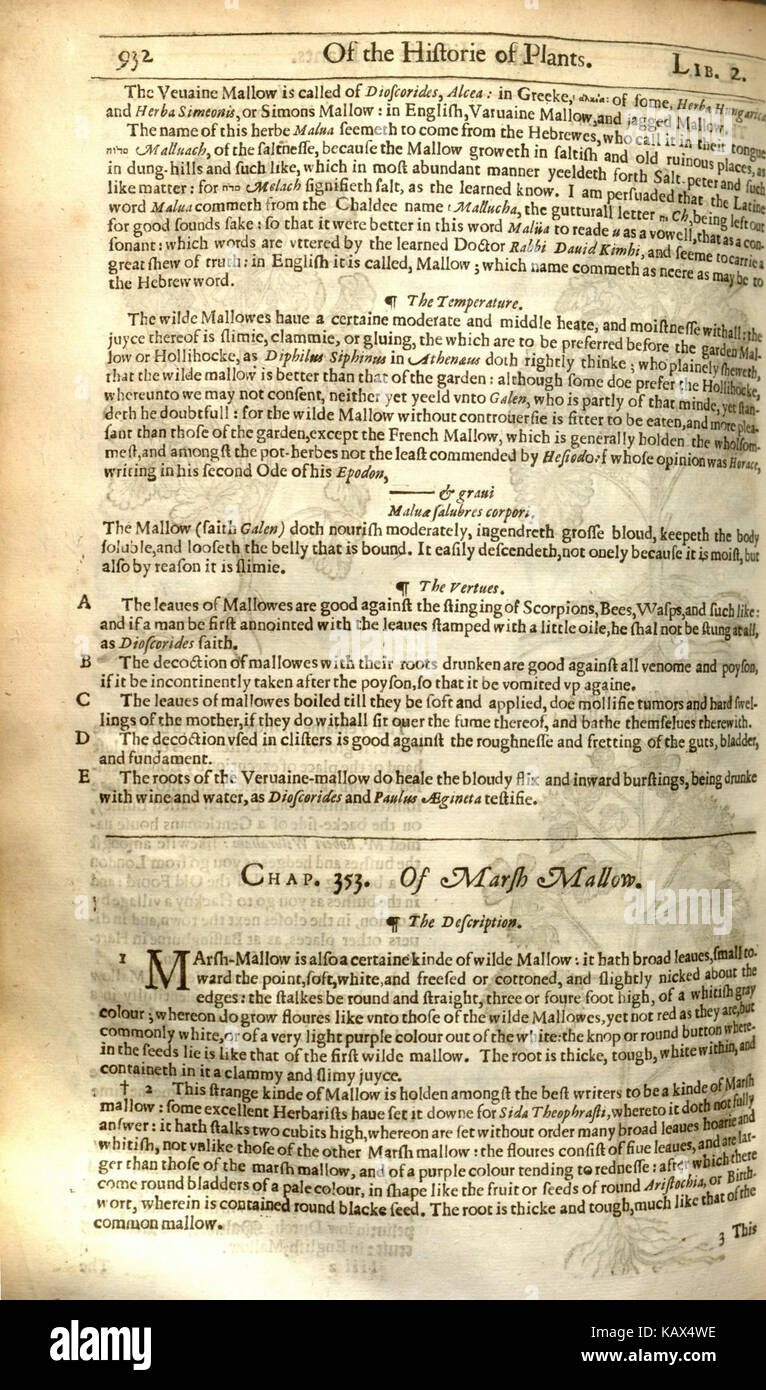 932 Of the Hiſtorie of Plants. LIB. 2.
The Veuaine Mallow is called of Dioſcorides, Alcea: in Greeke, of ſome, Herba Hungarica
and Herba Simeonis, or Simons Mallow: in Engliſh, Varuaine Mallow, and jagged Mallow.
The name of this herbe Malua ſeemeth to come from the Hebrewes, who call it in their tongue
Malluach, of the ſaltneſſe, becauſe the Mallow groweth in ſaltiſh and old ruinous places, as
in dung-hills and ſuch like, which in moſt abundant manner yeeldeth forth Salt-peter and ſuch
like matter: for מלח Melach ſignifieth ſalt, as the learned know. I am perſuaded that the Latine
word Malua commeth from the Chaldee name Mallucha, the gutturall letter ח, ch, being left out
for good ſounds ſake: ſo that it were better in this word Malüa to reade u as a vowell, that as a con-
ſonant: which words are vttered by the learned Doctor Rabbi Dauid Kimhi, and ſeeme to carrie a
great ſhew of truth: in Engliſh it is called, Mallow; which name commeth as neere as may be to
the Hebrew word.
¶ The Temperature.
The wilde Mallowes haue a certaine moderate and middle heate, and moiſtneſſe withall: the
juyce thereof is ſlimie, clammie, or gluing, the which are to be preferred before the garden Mal-
low or Hollihocke, as Diphilus Siphinus in Athenæus doth rightly thinke; who plainely ſheweth,
that the wilde mallow is better than that of the garden: although ſome doe prefer the Hollihocke,
whereunto we may not conſent, neither yet yeeld vnto Galen, who is partly of that minde, yet ſtan-
deth he doubtfull: for the wilde Mallow without controuerſie is fitter to be eaten, and more plea-
ſant than thoſe of the garden, except the French Mallow, which is generally holden the wholſom-
meſt, and amongſt the pot-herbes not the leaſt commended by Heſiod: of whoſe opinion was Horace,
writing in his ſecond Ode of his Epodon,
—— & graui
Maluæ ſalubres corpori.
The Mallow (ſaith Galen) doth nouriſh moderately, ingendreth groſſe bloud, keepeth the body
ſoluble, and looſeth the belly that is bound. It eaſily deſcendeth, not onely becauſe it is moiſt, but
alſo by reaſon it is ſlimie.
¶ The Vertues.
A The leaues of Mallowes are good againſt the ſtinging of Scorpions, Bees, Waſps, and ſuch like:
and if a man be firſt annointed with the leaues ſtamped with a little oile, he ſhal not be ſtung at all,
as Dioſcorides ſaith.
B The decoction of mallowes with their roots drunken are good againſt all venome and poyſon,
if it be incontinently taken after the poyſon, ſo that it be vomited vp againe.
C The leaues of mallowes boiled till they be ſoft and applied, doe mollifie tumors and hard ſwel-
lings of the mother, if they do withall ſit ouer the fume thereof, and bathe themſelues therewith.
D The decoction vſed in cliſters is good againſt the roughneſſe and fretting of the guts, bladder,
and fundament.
E The roots of the Veruaine-mallow do heale the bloudy flix and inward burſtings, being drunke
with wine and water, as Dioſcorides and Paulus Ægineta teſtifie.
CHAP. 353. Of Marſh Mallow.
¶ The Deſcription.
1 MArſh-Mallow is alſo a certaine kinde of wilde Mallow: it hath broad leaues, ſmall to-
ward the point, ſoft, white, and freeſed or cottoned, and ſlightly nicked about the
edges: the ſtalkes be round and ſtraight, three or foure foot high, of a whitiſh gray
colour; whereon do grow floures like vnto thoſe of the wilde Mallowes, yet not red as they are, but
commonly white, or of a very light purple colour out of the white: the knop or round button where-
in the ſeeds lie is like that of the firſt wilde mallow. The root is thicke, tough, white within, and
containeth in it a clammy and ſlimy juyce.
† 2 This ſtrange kinde of Mallow is holden amongſt the beſt writers to be a kinde of Marſh
mallow: ſome excellent Herbariſts haue ſet it downe for Sida Theophraſti, whereto it doth not fully
anſwer: it hath ſtalks two cubits high, whereon are ſet without order many broad leaues hoarie and
whitiſh, not vnlike thoſe of the other Marſh mallow: the floures conſiſt of fiue leaues, and are lar-
ger than thoſe of the marſh mallow, and of a purple colour tending to redneſſe: after which there
come round bladders of a pale colour, in ſhape like the fruit or ſeeds of round Ariſtochia, or Birth-
wort, wherein is contained round blacke ſeed. The root is thicke and tough, much like that of the
common mallow.
3 This
alamy
Image ID: KAX4WE
www.alamy.com